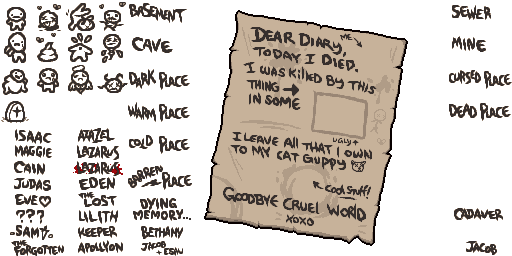 BASEMENT
CAVE
DARK PLACE
WARM PLACE
COLD PLACE
BARREN PLACE
DYING MEMORY...
ISAAC
MAGGIE
CAIN
JUDAS
EVE
???
SAMS
THE FORGOTTEN
AZAZEL
LAZARUS
LAZARUS
EDEN
THE LOST
LILITH
KEEPER
APOLLYON
BETHANY
JACOB + ESAU
DEAR DIARY,
ME
TODAY I DIED.
I WAS KILLED BY THIS
THING
IN SOME
UGLY
I LEAVE ALL THAT I OWN
TO MY CAT GUPPY
COOL STUFF!
GOODBYE CRUEL WORLD
XOXO
SEWER
MINE
CURSED PLACE
DEAD PLACE
CADAVER
JACOB